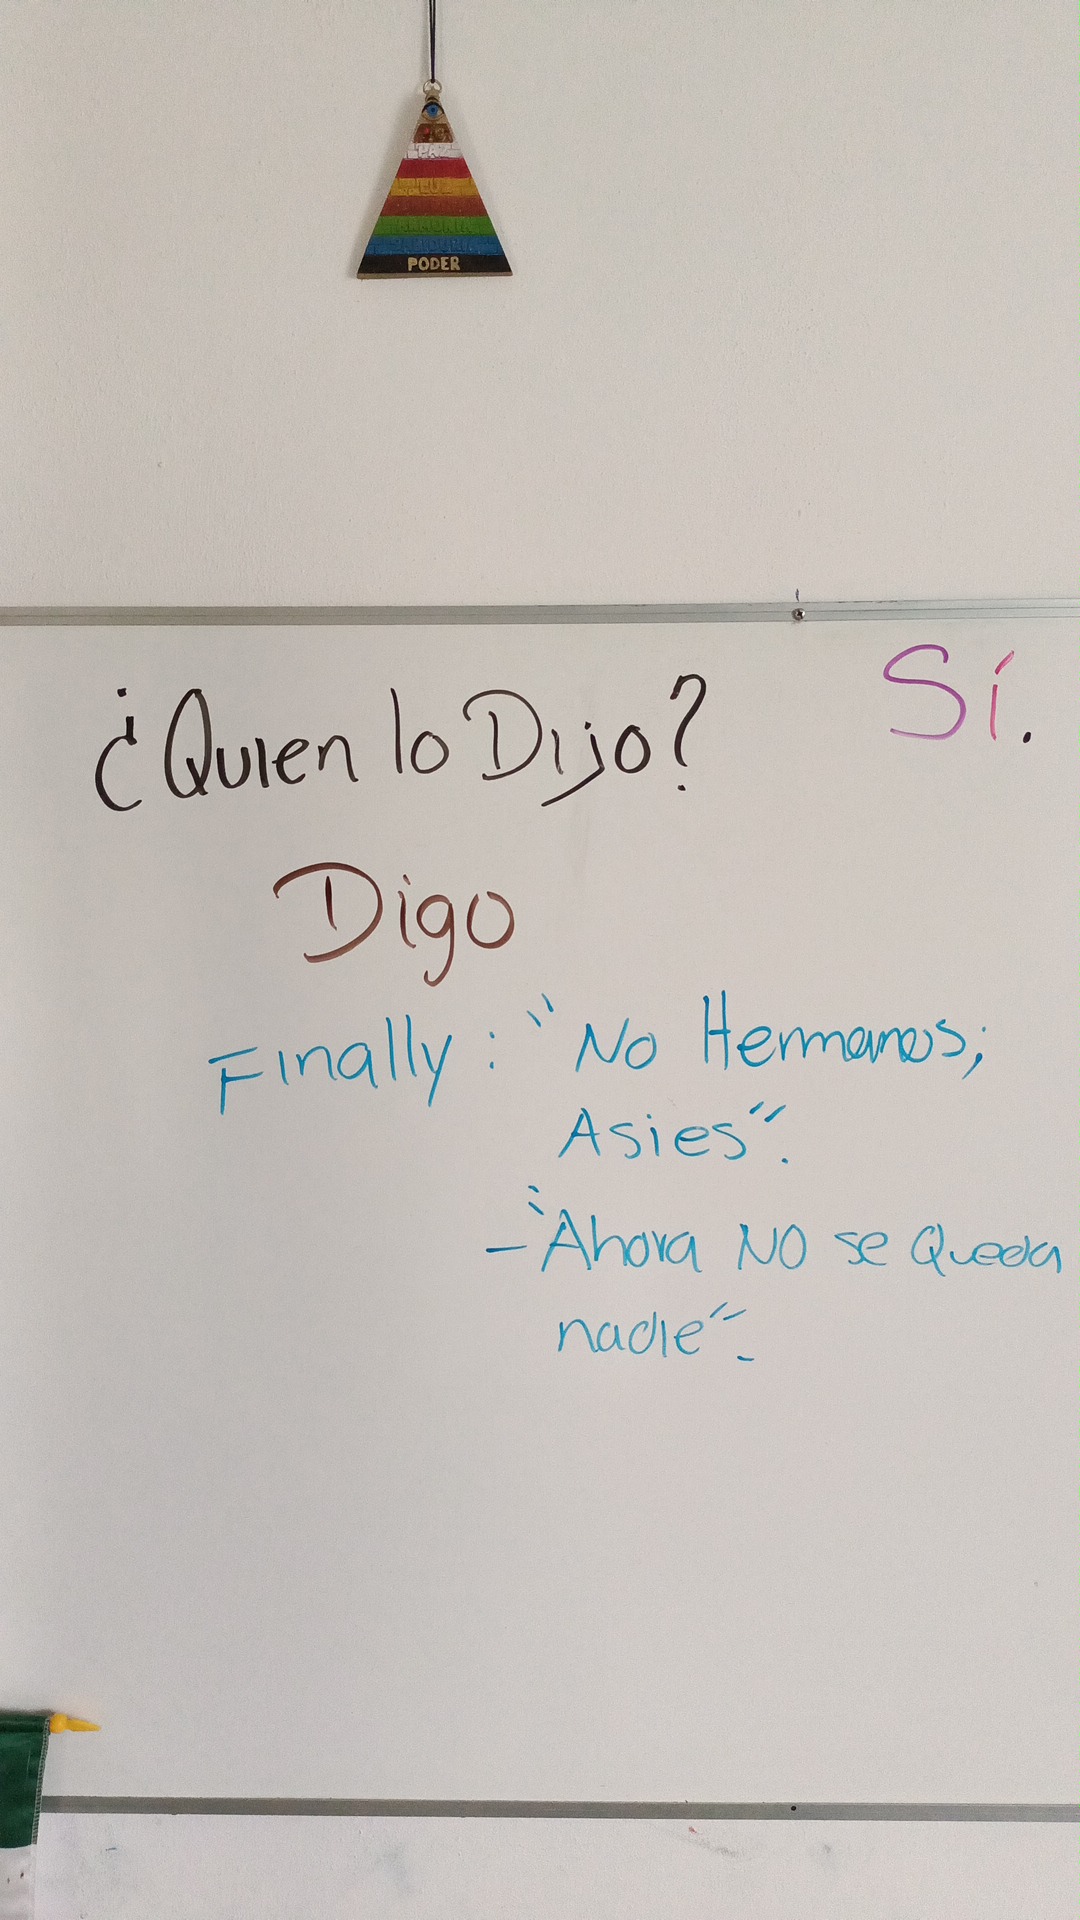 PAZ
PODER
¿Quien lo Dijo?
Sí.
Digo
Finally: "No Hermanos;
Asies".
- "Ahora NO se Queda
nadie".